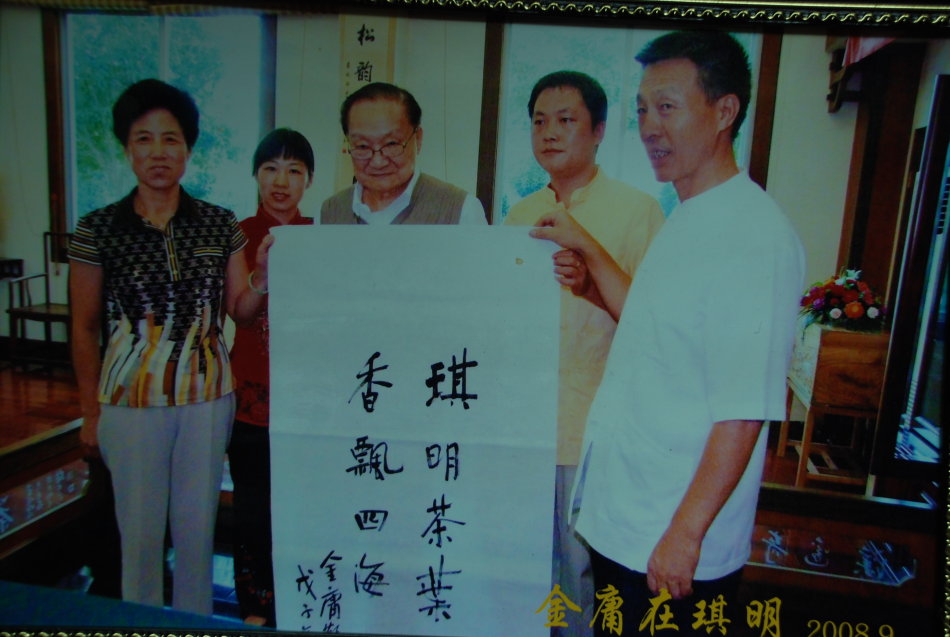 松韵
琪明茶葉
香飄四海
金庸
戊子
金庸在琪明 2008.9